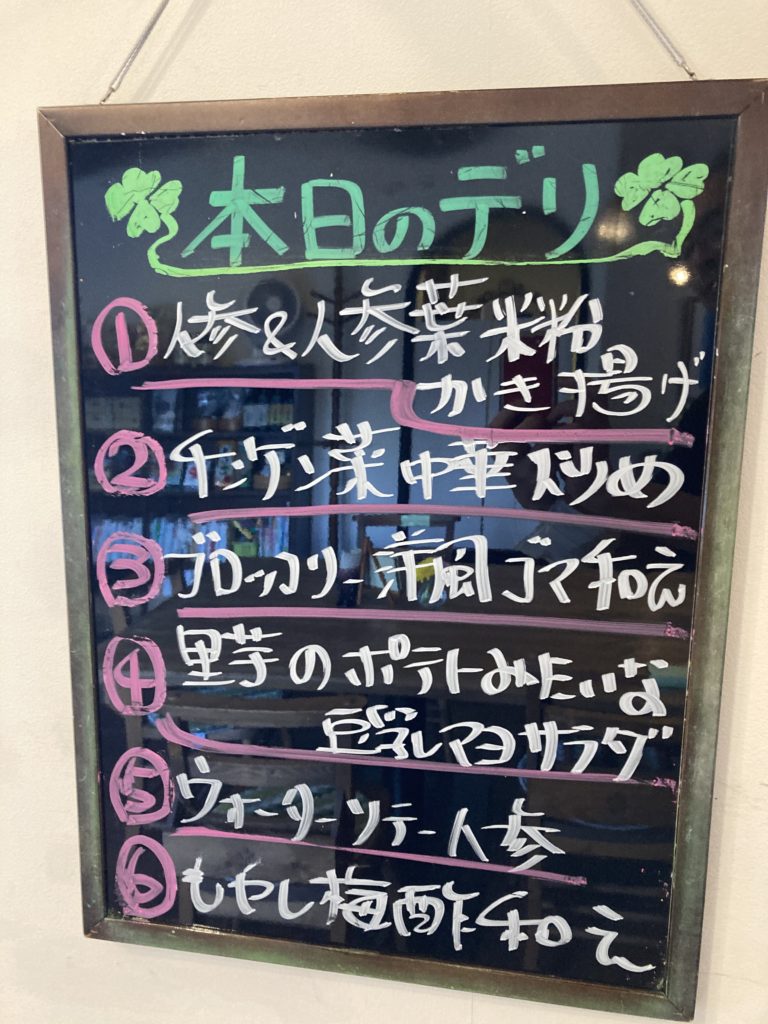 本日のデリ
① 人参&人参葉米粉
かき揚げ
② チンゲン菜中華炒め
③ ブロッコリー洋風ゴマ和え
④ 里芋のポテトみたいな
豆乳マヨサラダ
⑤ ウォーターソテー人参
⑥ もやし梅酢和え